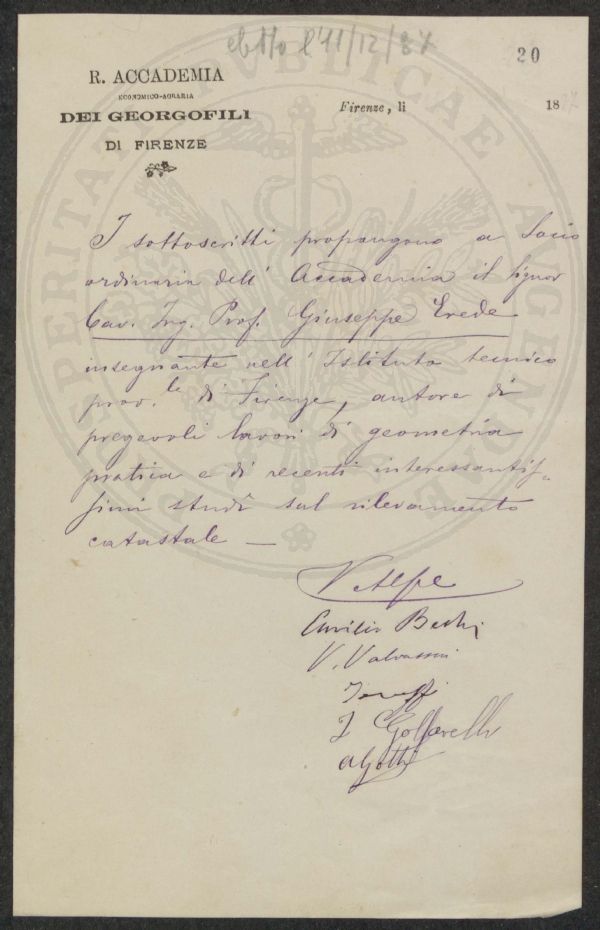 eletto l'11/12/87
20
R. ACCADEMIA
ECONOMICO-AGRARIA
DEI GEORGOFILI
DI FIRENZE
Firenze, li 1887
PROSPERITATI PVBLICAE AVGENDAE
I sottoscritti propongono a Socio
ordinario dell' Accademia il Signor
Cav. Ing. Prof. Giuseppe Erede
insegnante nell' Istituto tecnico
prov.le di Firenze, autore di
pregevoli lavori di geometria
pratica e di recenti interessantis-
simi studî sul rilevamento
catastale —
V. Alpe
Emilio Bechi
V. Valvassori
I Golfarelli
A Gotti